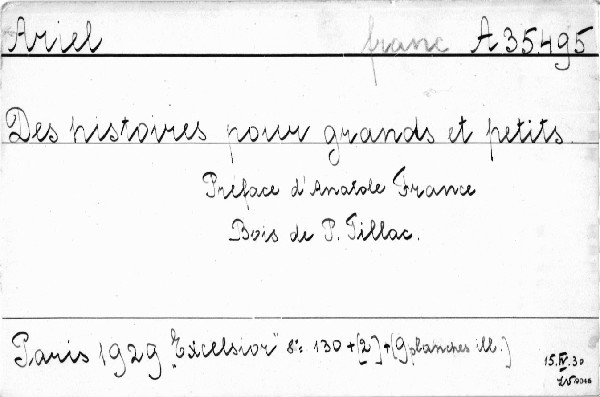 Ariel franc A 35495
Des histoires pour grands et petits.
Préface d'Anatole France
Bois de P. Tillac.
Paris 1929 "Excelsior" 8° 130 + [2] + [9 planches ill.]
15.IV.30